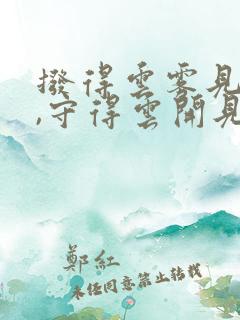 撥得雲雾見
,守得雲開見
鄭紅
未经同意禁止转载